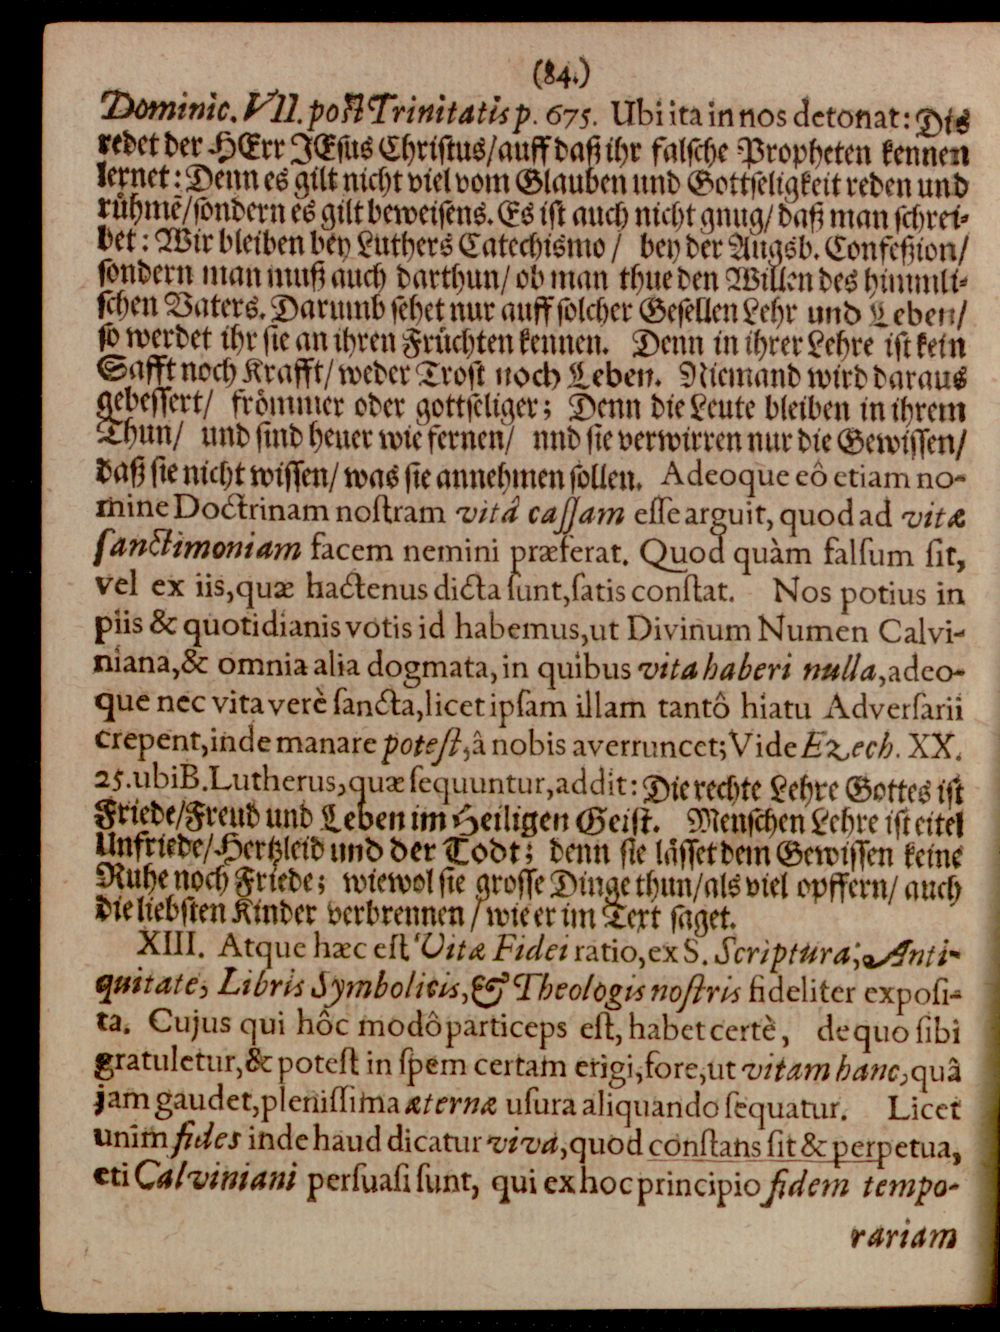 (84.)
Dominic. VII. post Trinitatis p. 675. Ubi ita in nos detonat: Dis
redet der HErr JEsus Christus/auff daß ihr falsche Propheten kennen
lernet: Denn es gilt nicht viel vom Glauben und Gottseligkeit reden und
rühmē/sondern es gilt beweisens. Es ist auch nicht gnug/daß man schrei-
bet: Wir bleiben bey Luthers Catechismo/ bey der Augsb. Confeßion/
sondern man muß auch darthun/ob man thue den Willen des himmli-
schen Vaters. Darumb sehet nur auff solcher Gesellen Lehr und Leben/
so werdet ihr sie an ihren Früchten kennen. Denn in ihrer Lehre ist kein
Safft noch Krafft/weder Trost noch Leben. Niemand wird daraus
gebessert/ frömmer oder gottseliger; Denn die Leute bleiben in ihrem
Thun/ und sind heuer wie fernen/ nnd sie verwirren nur die Gewissen/
daß sie nicht wissen/was sie annehmen sollen. Adeoque eô etiam no-
mine Doctrinam nostram vitâ cassam esse arguit, quod ad vitæ
sanctimoniam facem nemini præferat. Quod quàm falsum sit,
vel ex iis,quæ hactenus dicta sunt,satis constat. Nos potius in
piis & quotidianis votis id habemus,ut Divinum Numen Calvi-
niana,& omnia alia dogmata, in quibus vita haberi nulla,adeo-
que nec vita verè sancta,licet ipsam illam tantô hiatu Adversarii
crepent,inde manare potest,â nobis averruncet;Vide Ezech. XX.
25.ubi B.Lutherus,quæ sequuntur,addit: Die rechte Lehre Gottes ist
Friede/Freud und Leben im Heiligen Geist. Menschen Lehre ist eitel
Unfriede/Hertzleid und der Todt; denn sie lässet dem Gewissen keine
Ruhe noch Friede; wiewol sie grosse Dinge thun/als viel opffern/ auch
die liebsten Kinder verbrennen/wie er im Text saget.
XIII. Atque hæc est Vitæ Fidei ratio,ex S. Scriptura, Anti-
quitate, Libris Symbolicis,& Theologis nostris fideliter exposi-
ta. Cujus qui hôc modô particeps est, habet certè, de quo sibi
gratuletur,& potest in spem certam erigi,fore,ut vitam hanc,quâ
jam gaudet,plenissima æternæ usura aliquando sequatur. Licet
unim fides inde haud dicatur viva,quod constans sit & perpetua,
eti Calviniani persuasi sunt, qui ex hoc principio fidem tempo-
rariam